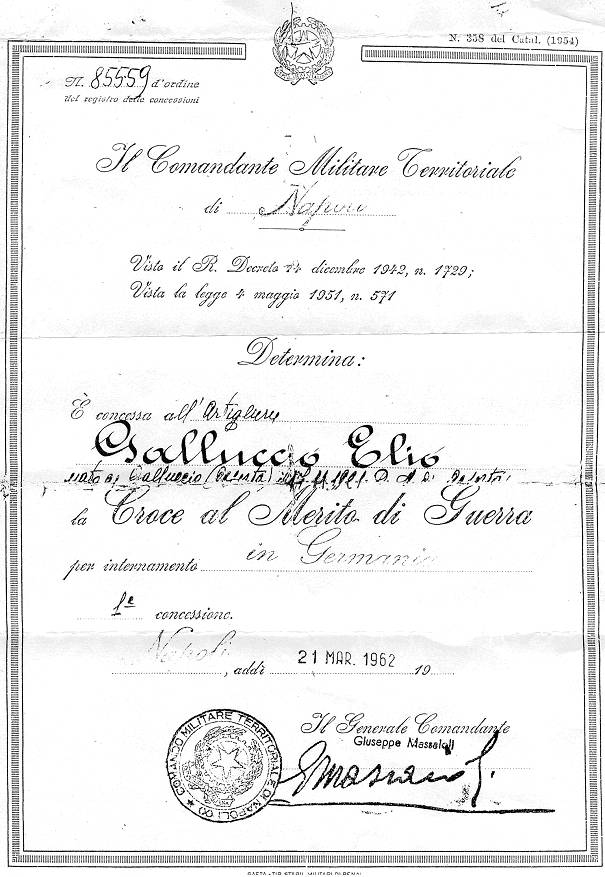 N. 358 del Catal. (1954)
N. 85559 d'ordine
del registro delle concessioni
Il Comandante Militare Territoriale
di Napoli
Visto il R. Decreto 14 dicembre 1942, n. 1729;
Vista la legge 4 maggio 1951, n. 571
Determina:
È concessa all'Artigliere
Galluccio Elio
nato a Galluccio (Caserta) il D. M. di Caserta
la Croce al Merito di Guerra
per internamento in Germania
1ª concessione.
Napoli, addì 21 MAR. 1962 19
Il Generale Comandante
Giuseppe Massaioli
COMANDO MILITARE TERRITORIALE DI NAPOLI
GAETA - TIP. STABIL. MILITARI DI PENA